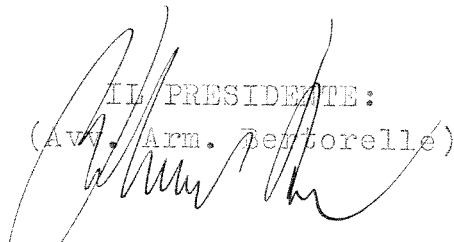 IL PRESIDENTE:
(Avv. Arm. Bertorelle)